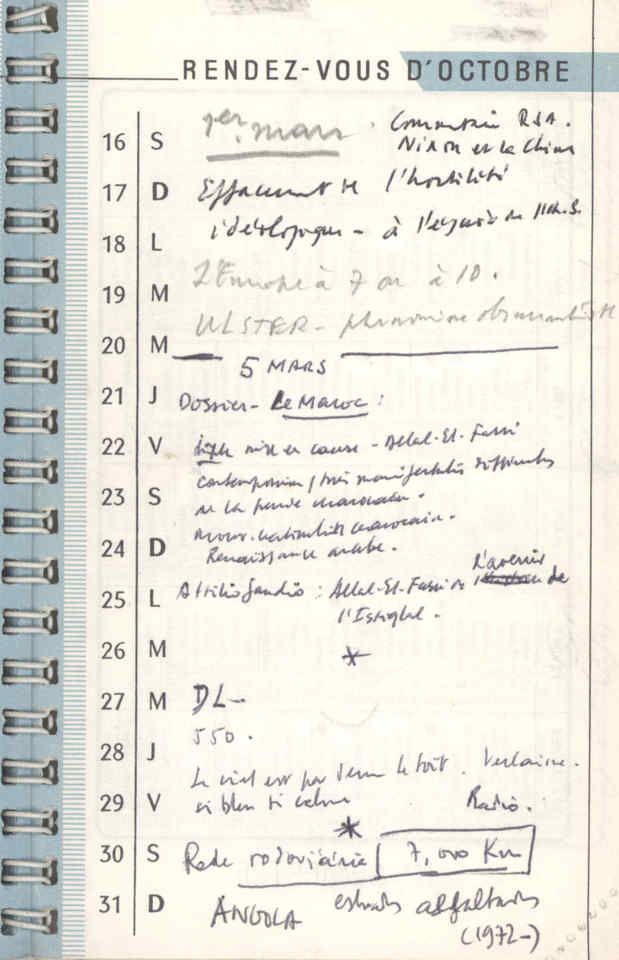 RENDEZ-VOUS D'OCTOBRE
16 S
1er. mars. Commentaire RSA.
Nixon et la Chine
17 D
Effacement de l'hostilité
18 L
idéologique - à l'égard
19 M
L'Europe à 7 ou à 10.
20 M
ULSTER - phénomène obscurantiste
5 MARS
21 J
Dossier - Le Maroc :
22 V
mise en cause - Allal-El-Fassi
23 S
contemporain / très manifestations différentes
de la pensée marocaine.
24 D
marocain.
Renaissance arabe.
25 L
Attilio Gaudio : Allal-El-Fassi ou l'avenir de
l'Istiqlal.
26 M
*
27 M
DL-
28 J
550.
Le ciel est par dessus le toit. Verlaine.
29 V
si bleu si calme Radio.
*
30 S
Rede rodoviária 7,000 Km
31 D
ANGOLA estradas asfaltadas
(1972-)